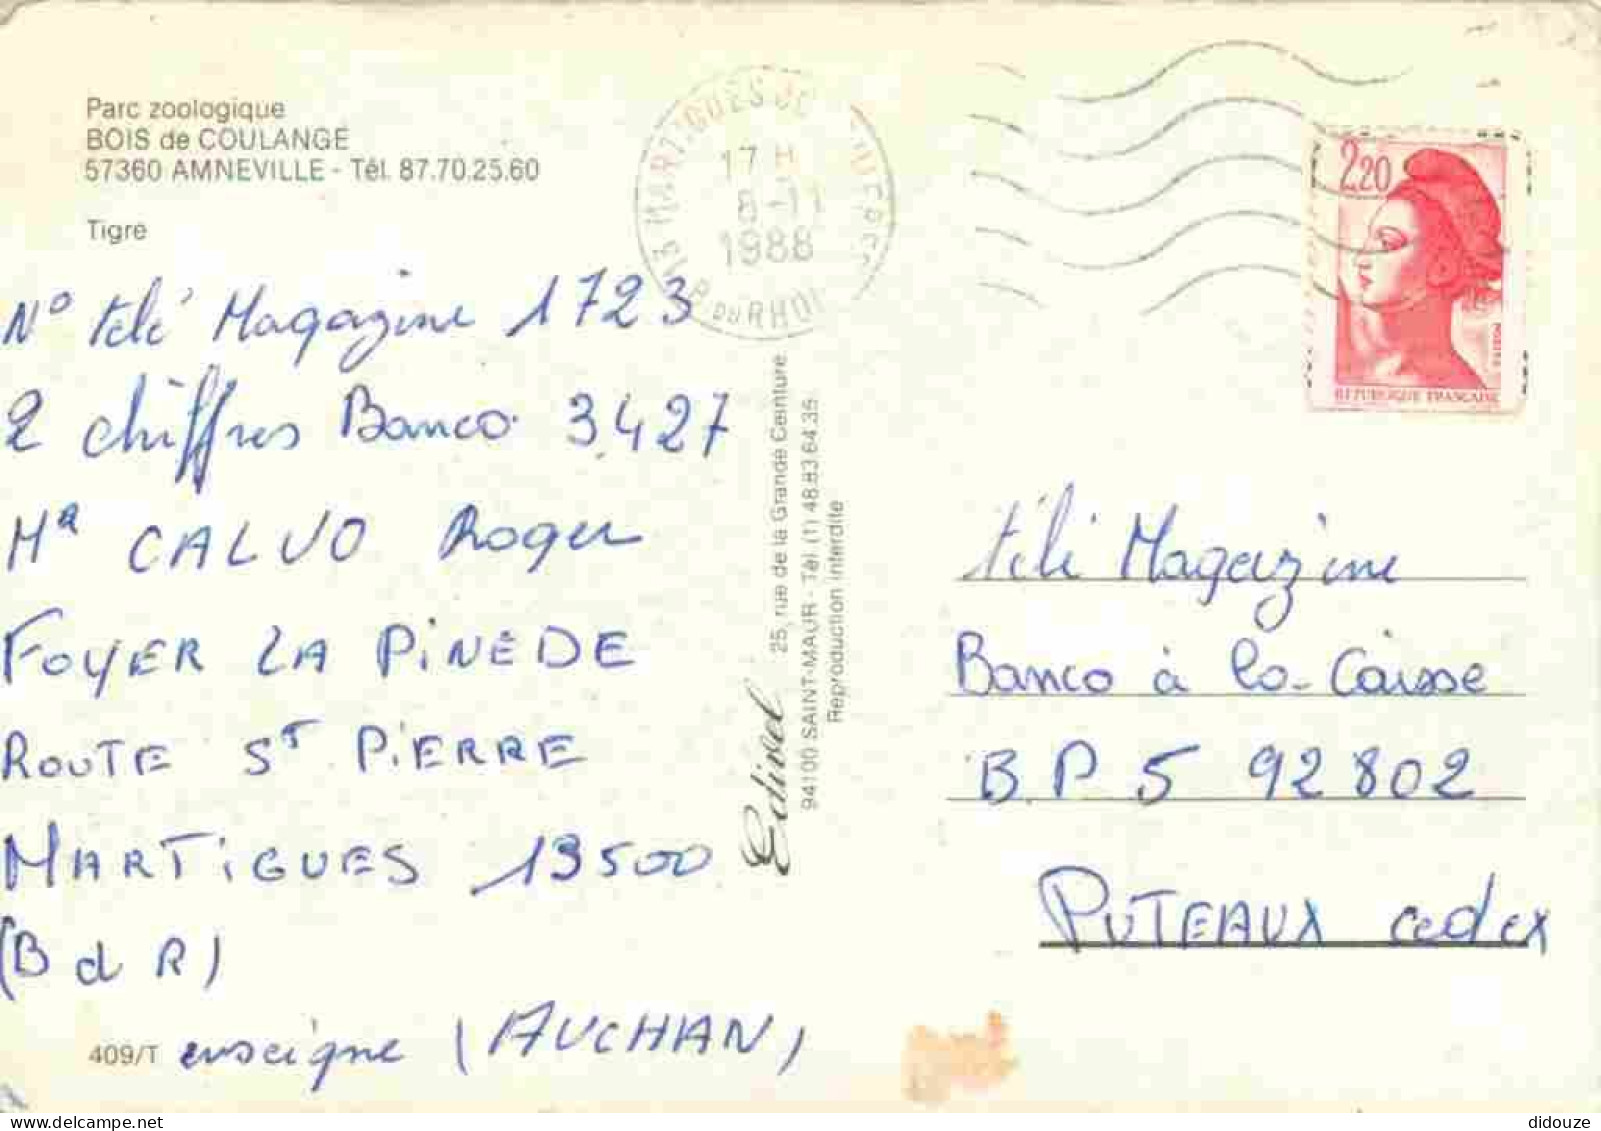 Parc zoologique
BOIS de COULANGE
57360 AMNEVILLE - Tél. 87.70.25.60
Tigre
N° télé Magazine 1723
2 chiffres Banco 3427
CALVO Roger
FOYER LA PINEDE
ROUTE ST PIERRE
MARTIGUES 13500
(B d R)
enseigne (AUCHAN)
409/T
13 MARTIGUES
17 H
1988
B. DU RHO
Edivel
25, rue de la Grande Ceinture
94100 SAINT-MAUR - Tél. (1) 48.83.64.35
Reproduction interdite
2,20
REPUBLIQUE FRANÇAISE
télé Magazine
Banco à la Caisse
B.P 5 92802
PUTEAUX cedex
didouze